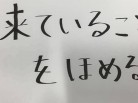 来ているこ
をほめる